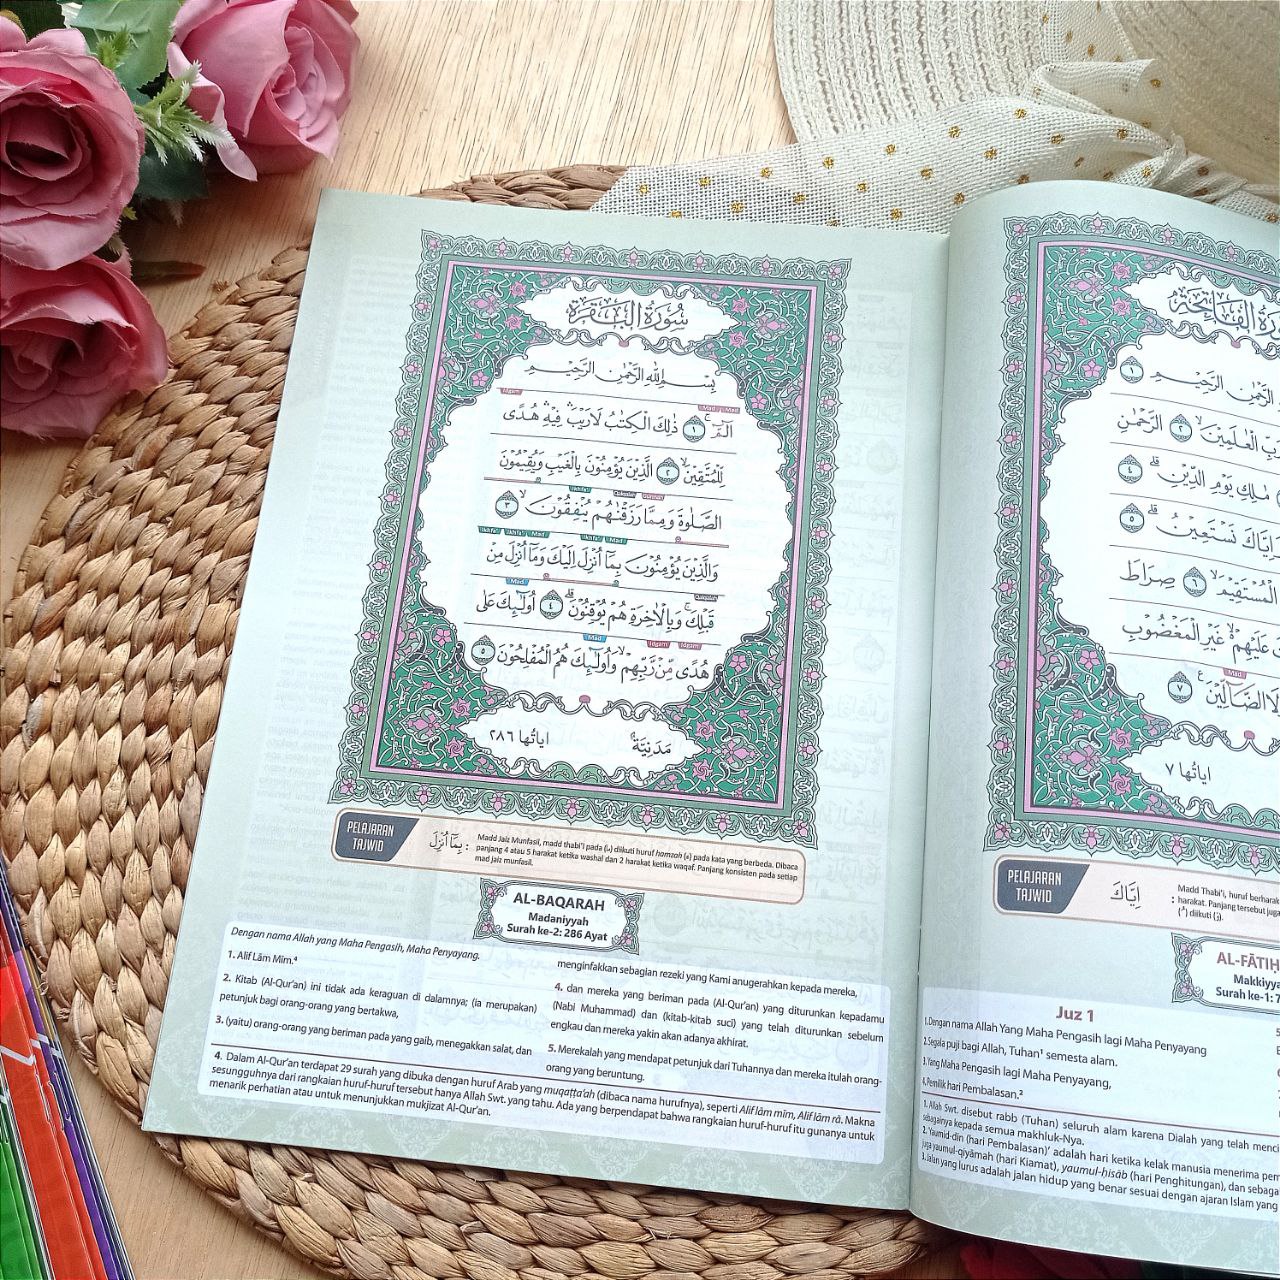 سُورَةُ الْبَقَرَةِ
بِسْمِ اللّٰهِ الرَّحْمٰنِ الرَّحِيْمِ
Idgam Mad Mad
الۤمّۤ ۚ ١ ذٰلِكَ الْكِتٰبُ لَا رَيْبَ ۛ فِيْهِ ۛ هُدًى
لِّلْمُتَّقِيْنَۙ ٢ الَّذِيْنَ يُؤْمِنُوْنَ بِالْغَيْبِ وَيُقِيْمُوْنَ
Ikhfa' Qalqalah Gunnah
الصَّلٰوةَ وَمِمَّا رَزَقْنٰهُمْ يُنْفِقُوْنَ ۙ ٣
Ikhfa' Ikhfa' Mad Ikhfa' Mad
وَالَّذِيْنَ يُؤْمِنُوْنَ بِمَآ اُنْزِلَ اِلَيْكَ وَمَآ اُنْزِلَ مِنْ
Mad Qalqalah
قَبْلِكَ ۚ وَبِالْاٰخِرَةِ هُمْ يُوْقِنُوْنَۗ ٤ اُولٰۤىِٕكَ عَلٰى
Mad Idgam Idgam
هُدًى مِّنْ رَّبِّهِمْ ۙ وَاُولٰۤىِٕكَ هُمُ الْمُفْلِحُوْنَ ٥
مَدَنِيَّةٌ اٰيَاتُهَا ٢٨٦
PELAJARAN
TAJWID
بِمَآ اُنْزِلَ :
Madd Jaiz Munfasil, madd thabi'i pada (مَا) diikuti huruf hamzah (ء) pada kata yang berbeda. Dibaca
panjang 4 atau 5 harakat ketika washal dan 2 harakat ketika waqaf. Panjang konsisten pada setiap
mad jaiz munfasil.
AL-BAQARAH
Madaniyyah
Surah ke-2: 286 Ayat
Dengan nama Allah yang Maha Pengasih, Maha Penyayang.
1. Alif Lâm Mîm.⁴
2. Kitab (Al-Qur'an) ini tidak ada keraguan di dalamnya; (ia merupakan)
petunjuk bagi orang-orang yang bertakwa,
3. (yaitu) orang-orang yang beriman pada yang gaib, menegakkan salat, dan
menginfakkan sebagian rezeki yang Kami anugerahkan kepada mereka,
4. dan mereka yang beriman pada (Al-Qur'an) yang diturunkan kepadamu
(Nabi Muhammad) dan (kitab-kitab suci) yang telah diturunkan sebelum
engkau dan mereka yakin akan adanya akhirat.
5. Merekalah yang mendapat petunjuk dari Tuhannya dan mereka itulah orang-
orang yang beruntung.
4. Dalam Al-Qur'an terdapat 29 surah yang dibuka dengan huruf Arab yang muqaṭṭa'ah (dibaca nama hurufnya), seperti Alif lâm mîm, Alif lâm râ. Makna
sesungguhnya dari rangkaian huruf-huruf tersebut hanya Allah Swt. yang tahu. Ada yang berpendapat bahwa rangkaian huruf-huruf itu gunanya untuk
menarik perhatian atau untuk menunjukkan mukjizat Al-Qur'an.
الْفَاتِحَةِ
الرَّحْمٰنِ الرَّحِيْمِ ١
الْعٰلَمِيْنَۙ ٢ الرَّحْمٰنِ
مٰلِكِ يَوْمِ الدِّيْنِۗ ٤
وَاِيَّاكَ نَسْتَعِيْنُۗ ٥
الْمُسْتَقِيْمَ ۙ ٦ صِرَاطَ
عَلَيْهِمْ ەۙ غَيْرِ الْمَغْضُوْبِ
Mad
وَلَا الضَّاۤلِّيْنَ ࣖ ٧
اٰيَاتُهَا ٧
PELAJARAN
TAJWID
اِيَّاكَ :
Madd Thabi'i, huruf berharak
harakat. Panjang tersebut juga
diikuti
AL-FĀTIḤ
Makkiyya
Surah ke-1: 7
Juz 1
1.Dengan nama Allah Yang Maha Pengasih lagi Maha Penyayang
2.Segala puji bagi Allah, Tuhan¹ semesta alam.
3.Yang Maha Pengasih lagi Maha Penyayang,
4.Pemilik hari Pembalasan.²
1. Allah Swt. disebut rabb (Tuhan) seluruh alam karena Dialah yang telah menci
sebagainya kepada semua makhluk-Nya.
2. Yaumid-din (hari Pembalasan)' adalah hari ketika kelak manusia menerima pem
juga yaumul-qiyâmah (hari Kiamat), yaumul-ḥisâb (hari Penghitungan), dan sebaga
3. Jalan yang lurus adalah jalan hidup yang benar sesuai dengan ajaran Islam yang